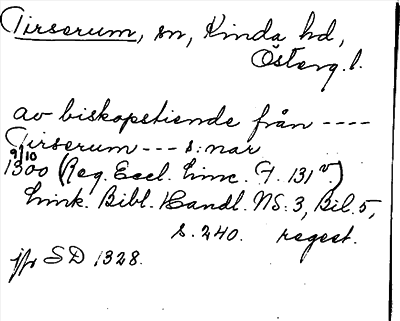 Tirserum, sn, Kinda hd,
Österg. l.
av biskopstiende från ----
Tirserum --- s: nar
9/10
1300 (Reg. Eccl. Linc. f. 131 v)
Link. Bibl. Handl. NS. 3, Bil. 5,
s. 240. regest.
jfr SD 1328.